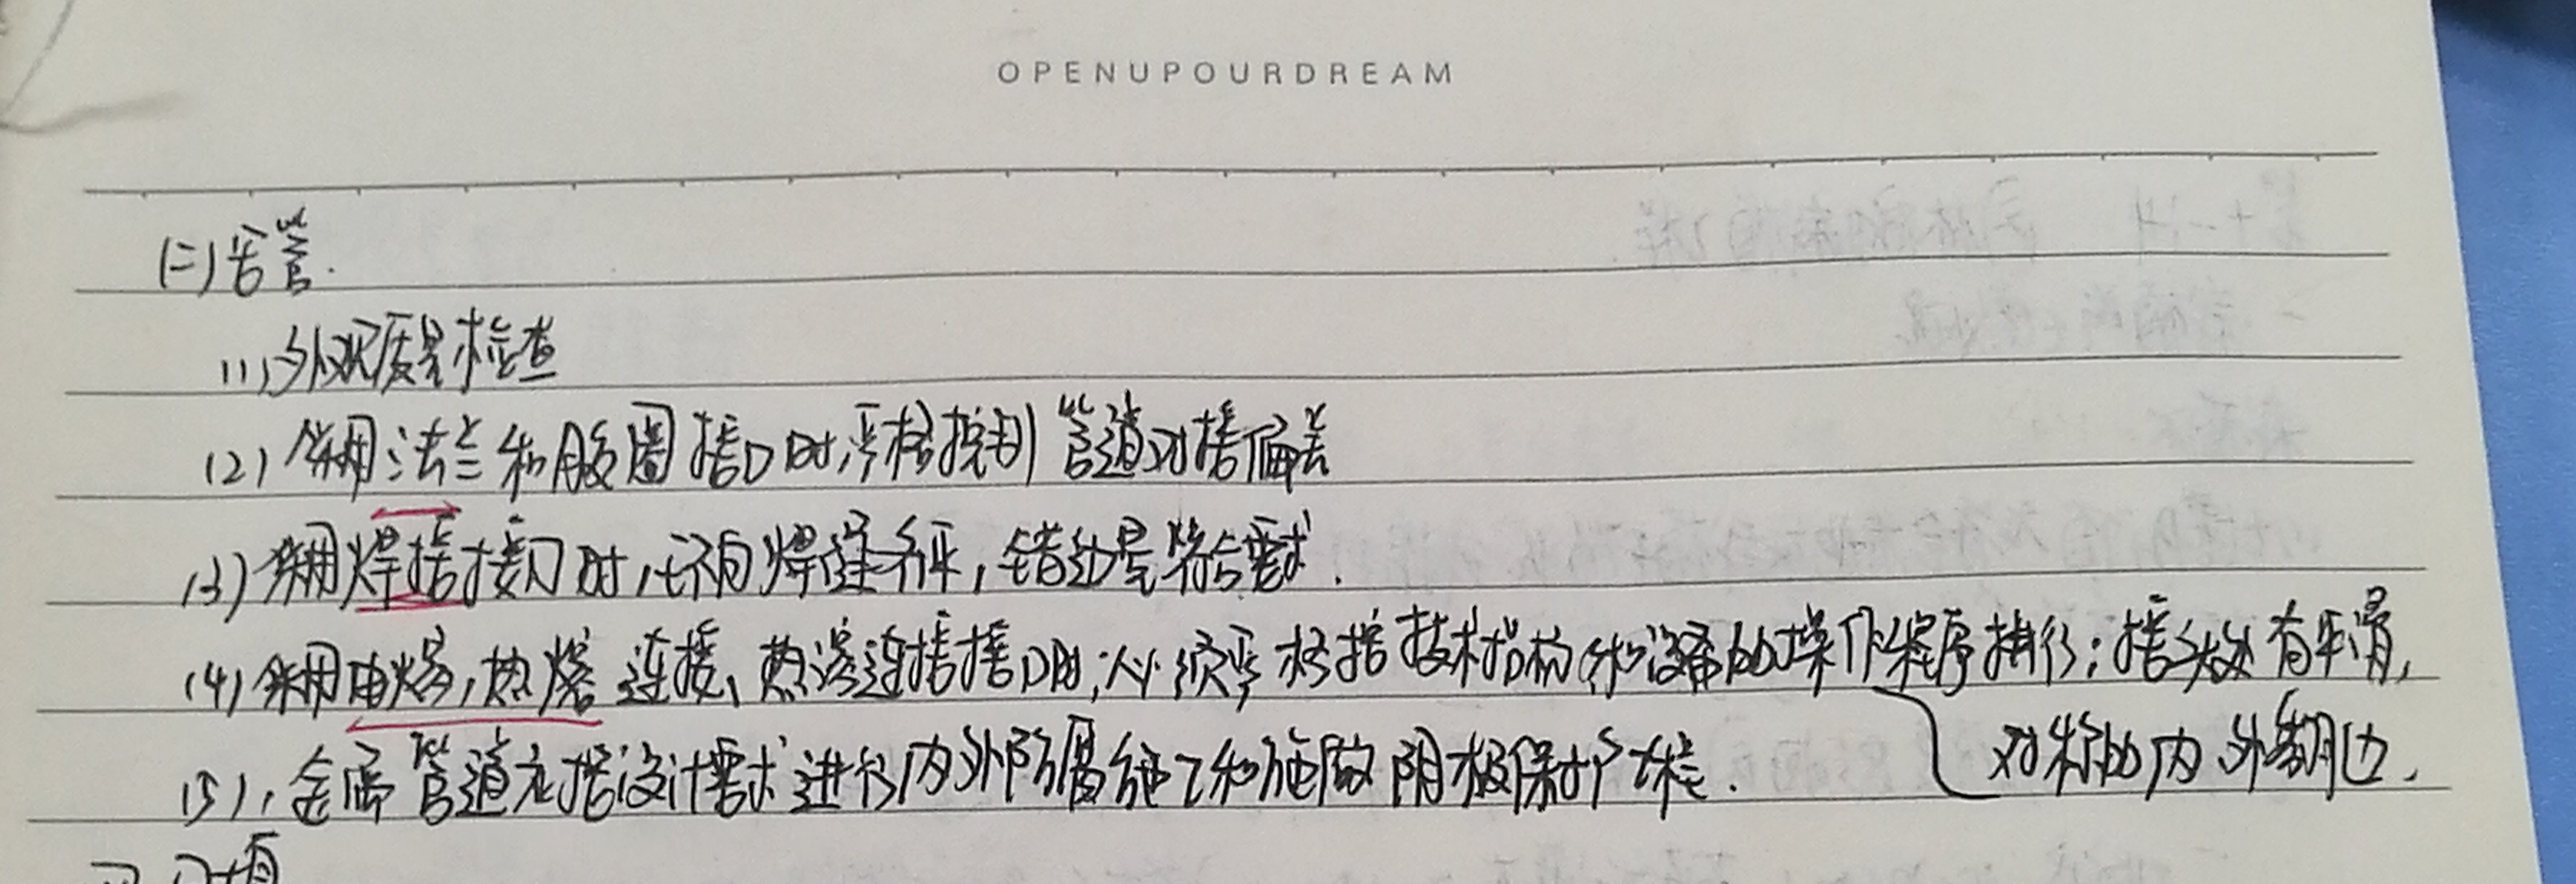 OPENUPOURDREAM
(二)安管.
(1)外观质量检查
(2)采用法兰和胶圈接口时,严格控制管道对接偏差
(3)采用焊接接口时,两焊缝 ,错边量符合要求.
(4)采用电熔,热熔连接、热溶连接接口时,必须严格按技术指标和设备的操作程序执行;接头处有平滑,
对称的内外翻边.
(5),金属管道应按设计要求进行内外防腐施工和施做阴极保护工程.